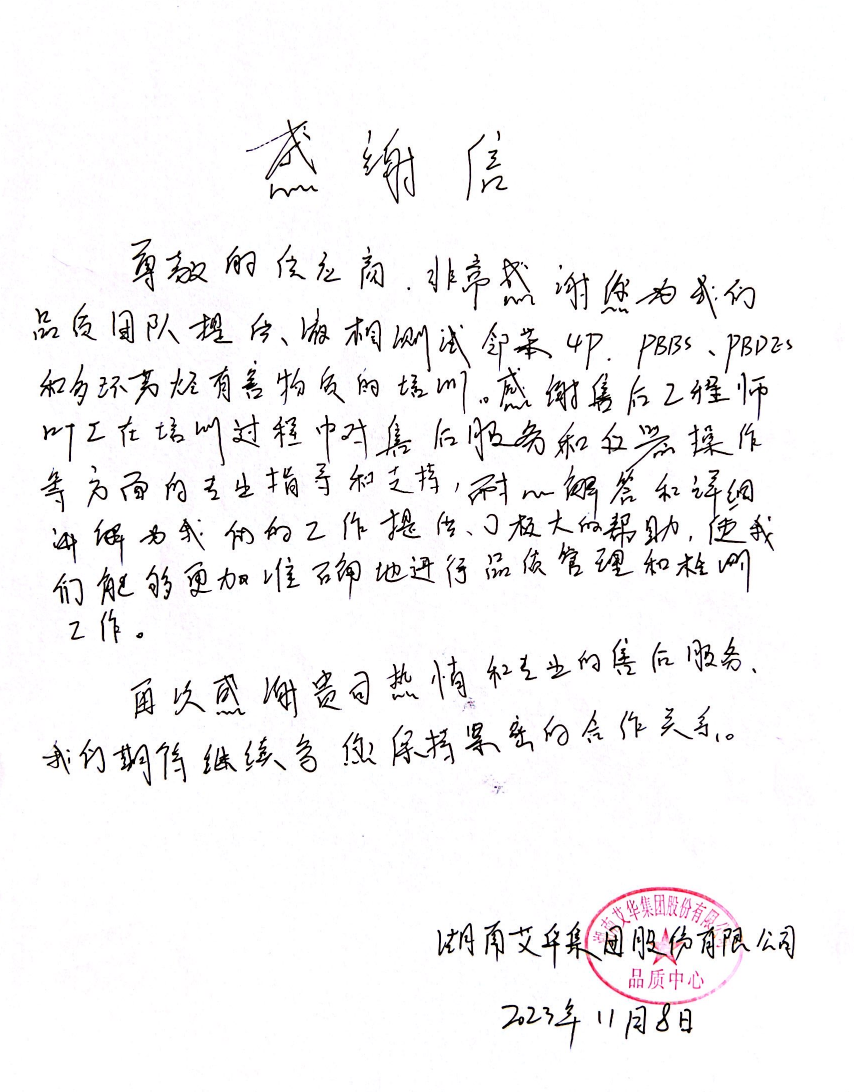 感谢信
尊敬的供应商、非常感谢您为我们
品质团队提供、液相测试邻苯4P、PBBs、PBDEs
和多环芳烃有害物质的培训。感谢售后工程师
叶工在培训过程中对售后服务和仪器操作
等方面的专业指导和支持,耐心解答和详细
讲解为我们的工作提供了极大的帮助,使我
们能够更加准确地进行品质管理和检测
工作。
再次感谢贵司热情和专业的售后服务、
我们期待继续与您保持紧密的合作关系。
湖南艾华集团股份有限公司
湖南艾华集团股份有限公司
品质中心
2023年11月8日